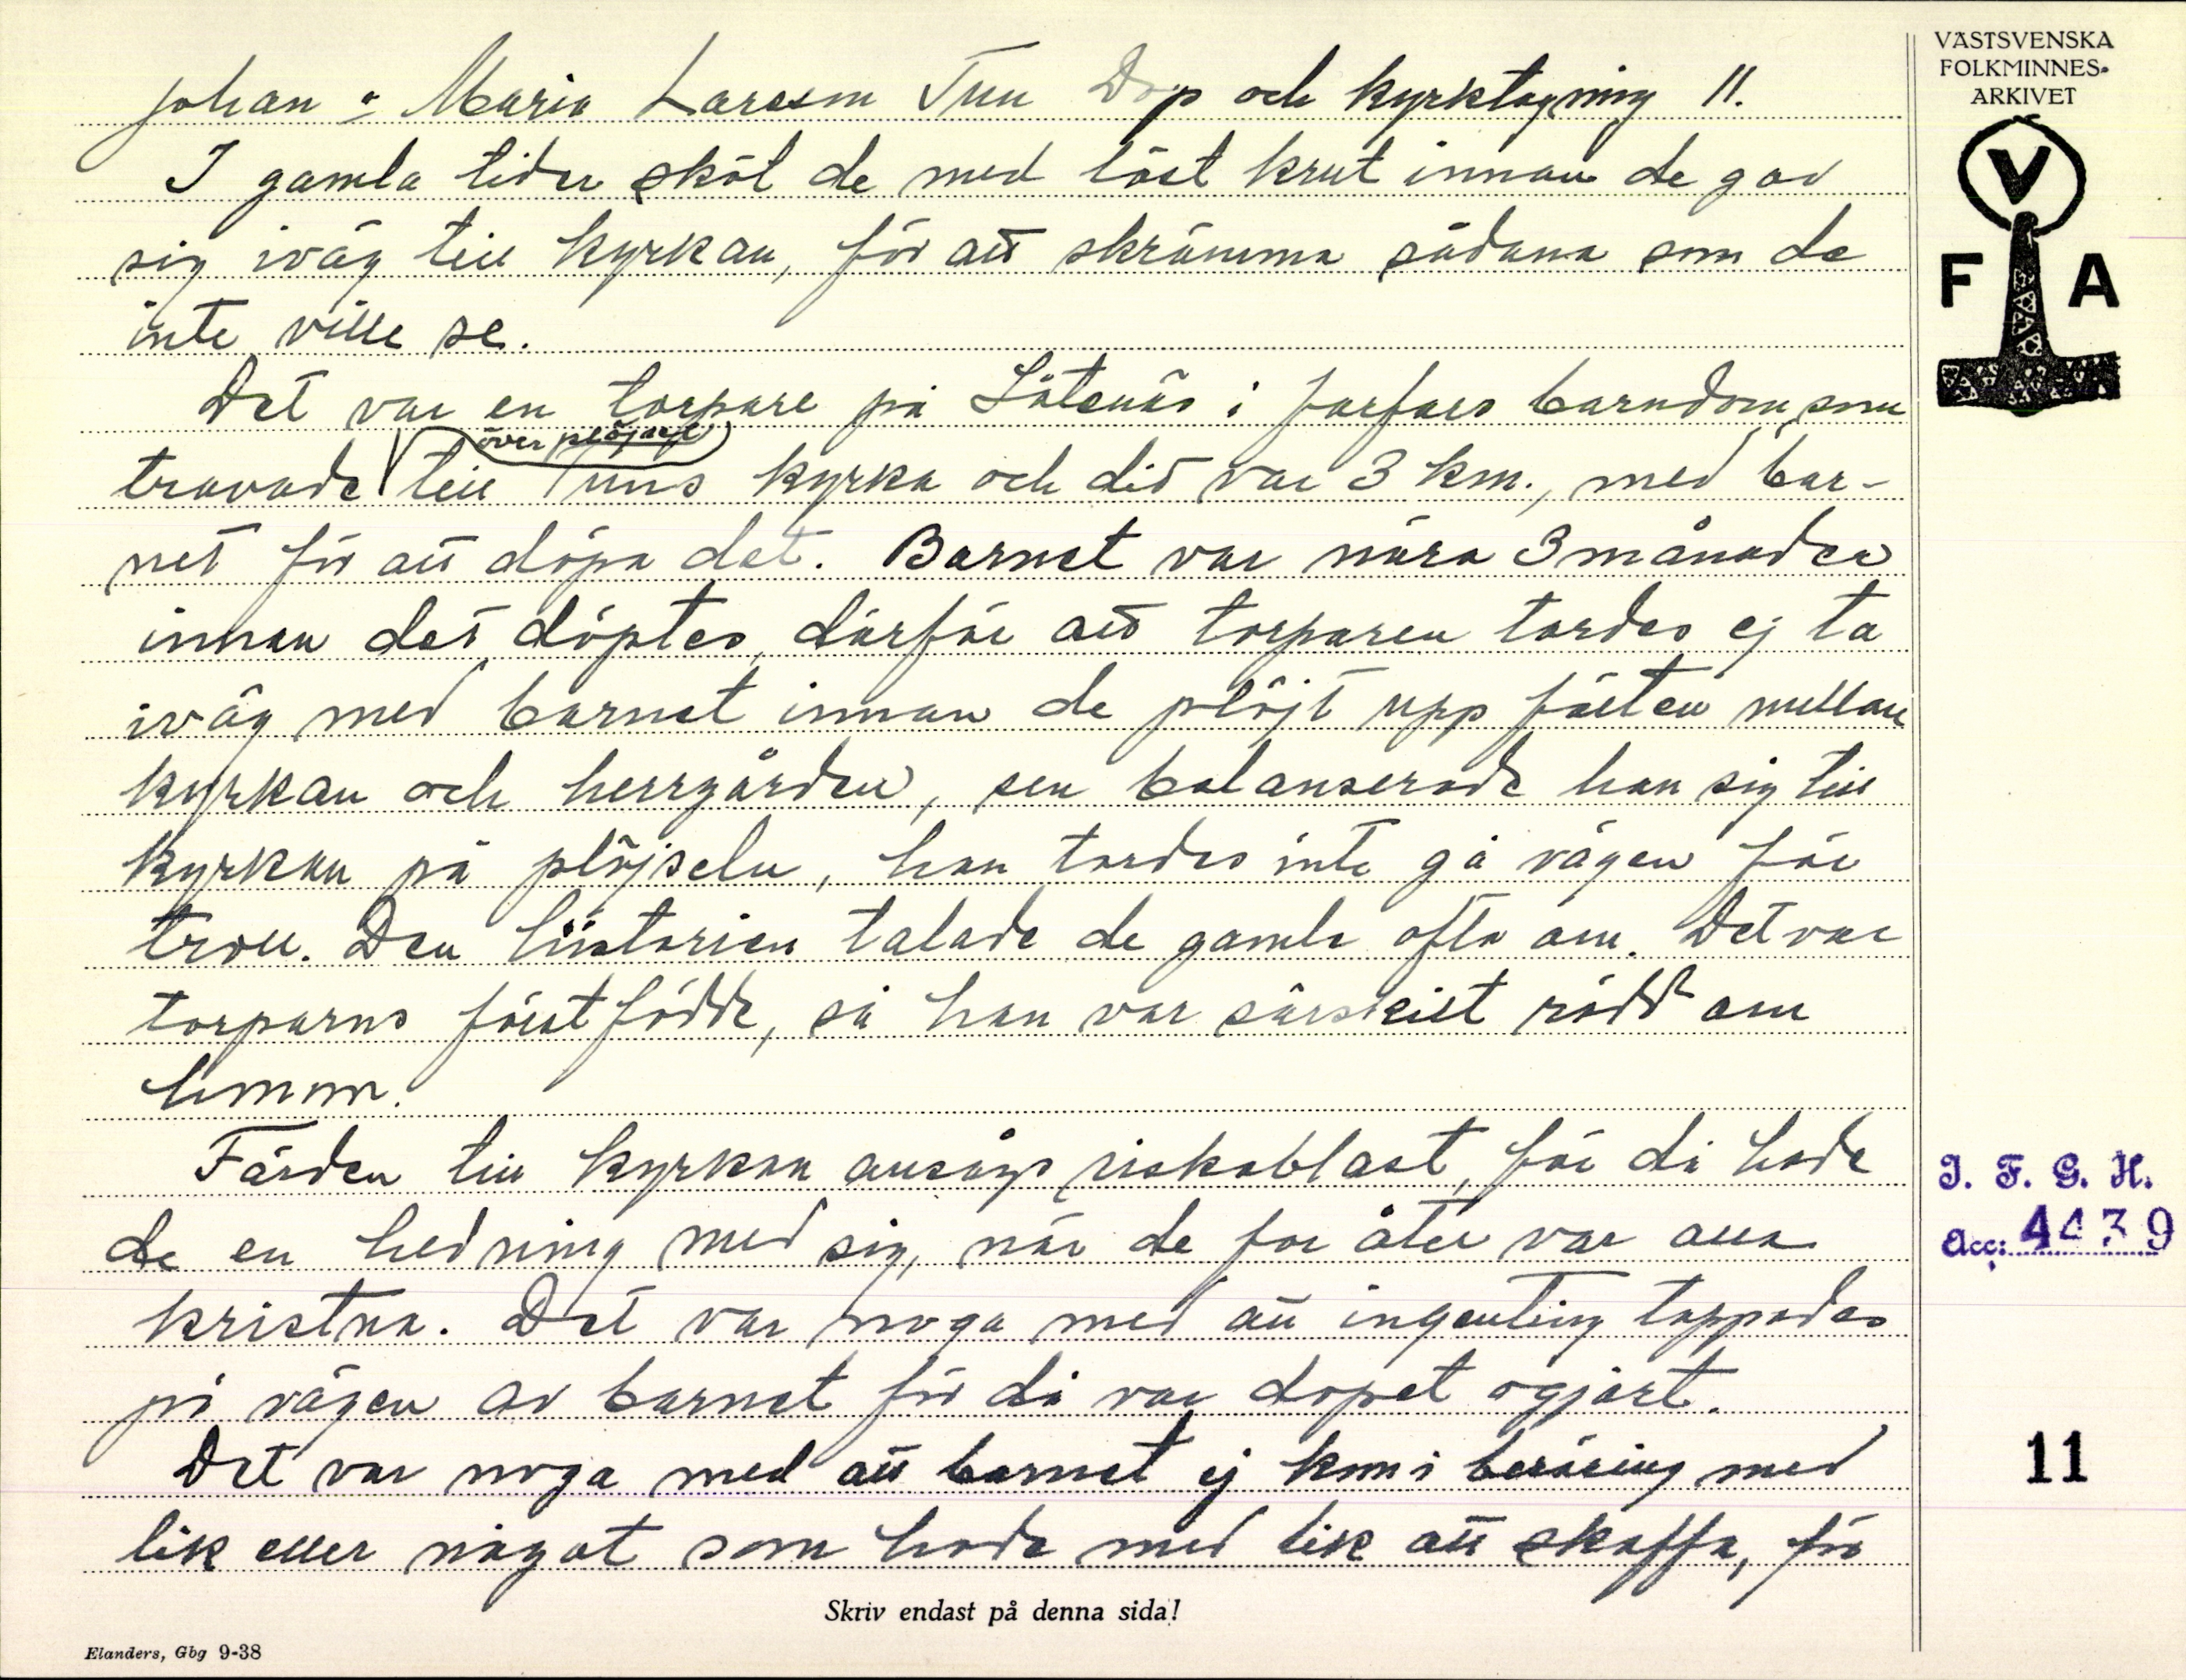 Johan o Maria Larsson Tun Dop och kyrktagning 11.
I gamla tider sköt de med löst krut innan de gav
sig iväg till kyrkan, för att skrämma sådana som de
inte ville se.
Det var en torpare på Låtenäs i farfars barndom, som
över plöjsel
travade till Tuns kyrka och dit var 3 km., med bar-
net för att döpa det. Barnet var nära 3 månader
innan det döptes, därför att torparen tordes ej ta
iväg med barnet innan de plöjt upp fälten mellan
kyrkan och herrgården, sen balanserade han sig till
kyrkan på plöjseln, han tordes inte gå vägen för
troll. Den historien talade de gamla ofta om. Det var
torparns förstfödde, så han var särskilt rädd om
honom.
Färden till kyrkan ansågs riskablast, för då hade
de en hedning med sig, när de for åter var alla
kristna. Det var noga med att ingenting tappades
på vägen av barnet för då var dopet ogjort.
Det var noga med att barnet ej kom i beröring med
lik eller något som hade med lik att skaffa, för
Skriv endast på denna sida!
Elanders, Gbg 9-38
VÄSTSVENSKA
FOLKMINNES-
ARKIVET
V
F A
I. F. G. H.
Acc: 4439
11